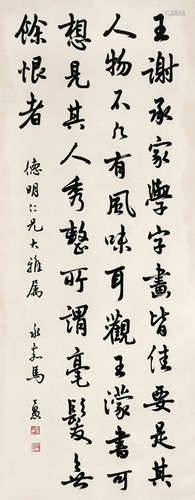 王謝承家學字畫皆佳要是其
人物不凡有風味耳觀王濛書可
想見其人秀整所謂毫髮無
餘恨者
德明仁兄大雅屬 永嘉馬公愚